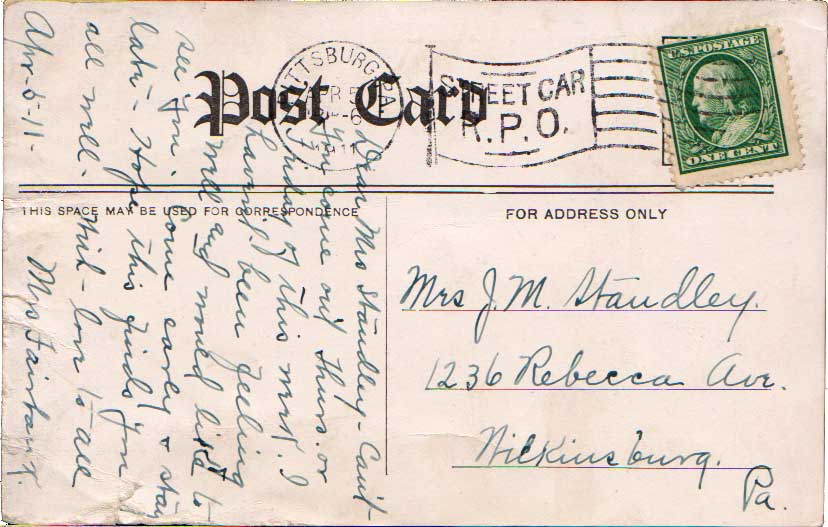 Post Card
PITTSBURG, PA.
APR 5
6
1911
STREET CAR
R.P.O.
U.S. POSTAGE
ONE CENT
THIS SPACE MAY BE USED FOR CORRESPONDENCE
FOR ADDRESS ONLY
Dear Mrs Standley - Can't
you come out Thurs. or
Friday of this week. I
haven't been feeling
well and would like to
see you. Come early & stay
late - Hope this finds you
all well. With love to all
Apr-5-11- Mrs
Mrs J. M. Standley.
1236 Rebecca Ave.
Wilkinsburg.
Pa.